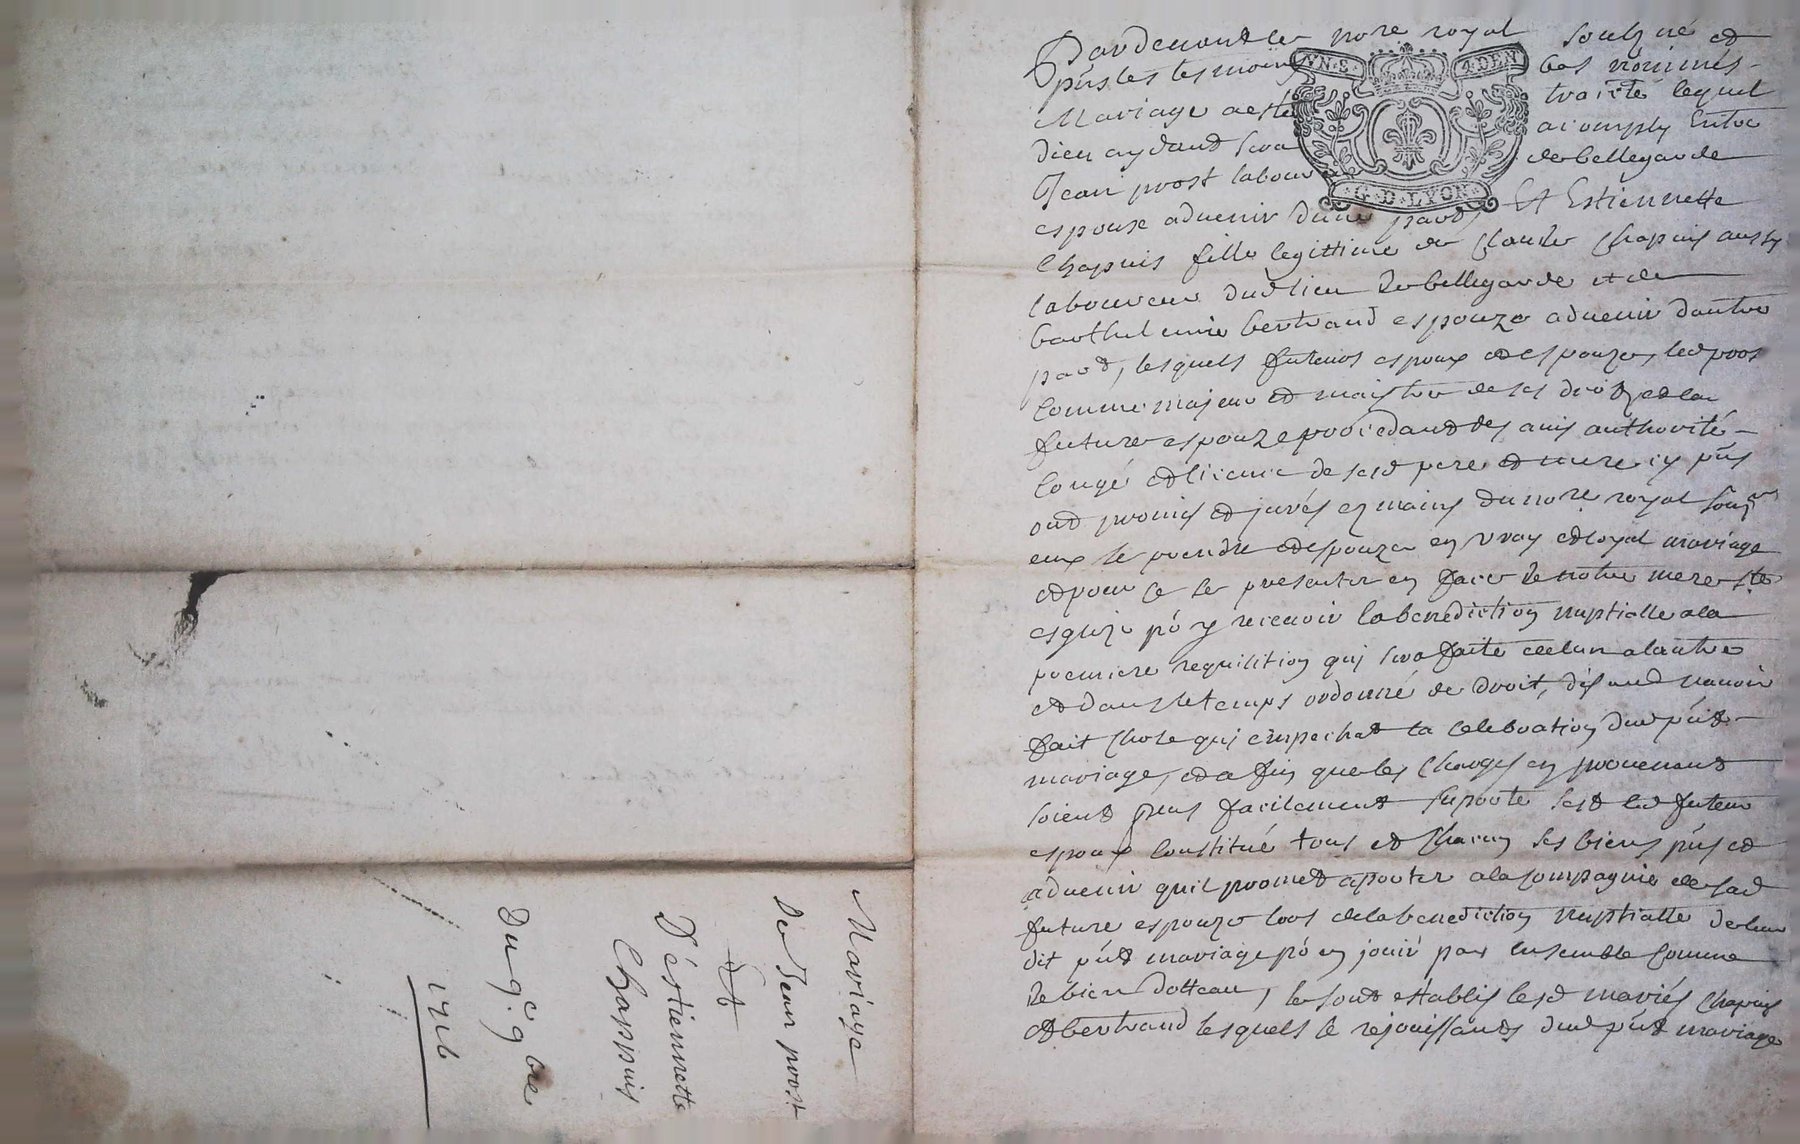 Pardevant le nore royal soubz né et
pnts les tesmoins bas nommés
Mariage a esté traicté lequel
dieu aydant sera acomply Entre
Jean prost laboureur de bellegarde
espoux advenir dune part, Et Estiennette
Chapuis fille legittime de Claude Chapuis aussy
laboureur dud lieu de bellegarde et de
barthelemie bertrand espouze advenir dautre
part, lesquels futeurs espoux et espouze, led pros
comme majeur et maistre de ses droits et la
future espouze procedant des avis authorité
Congé et licence de sesd pere et mere cy pnts
ont promis et jurés es mains du nore royal sousné
eux se prendre et espouzer en vray et loyal mariage
et pour ce se presenter en face de notre mere ste
esglize pr y recevoir la benediction nuptialle a la
premiere requisition qui sera faite de lun a lautre
et dans le temps ordonné de droit, disant navoir
fait chose qui empechat la celebration dud pnt
mariage, et afin que les charges en provenant
soient plus facilement suporté sest led futeur
espoux Constitué tous et chacun ses biens pnts et
advenir quil promet aporter a la compagnie de sad
future espouze lors de la benediction nuptialle de leur
dit pnt mariage pr en jouir par ensemble comme
de bien dotteau, se sont establis lesd mariés Chapuis
et bertrand lesquels se rejouissants dud pnt mariage
VN S 4 DEN
G D LYON
Mariage
De Jean prost
Et
D'éstiennette
Chappuis
Du 9e 9bre
1716